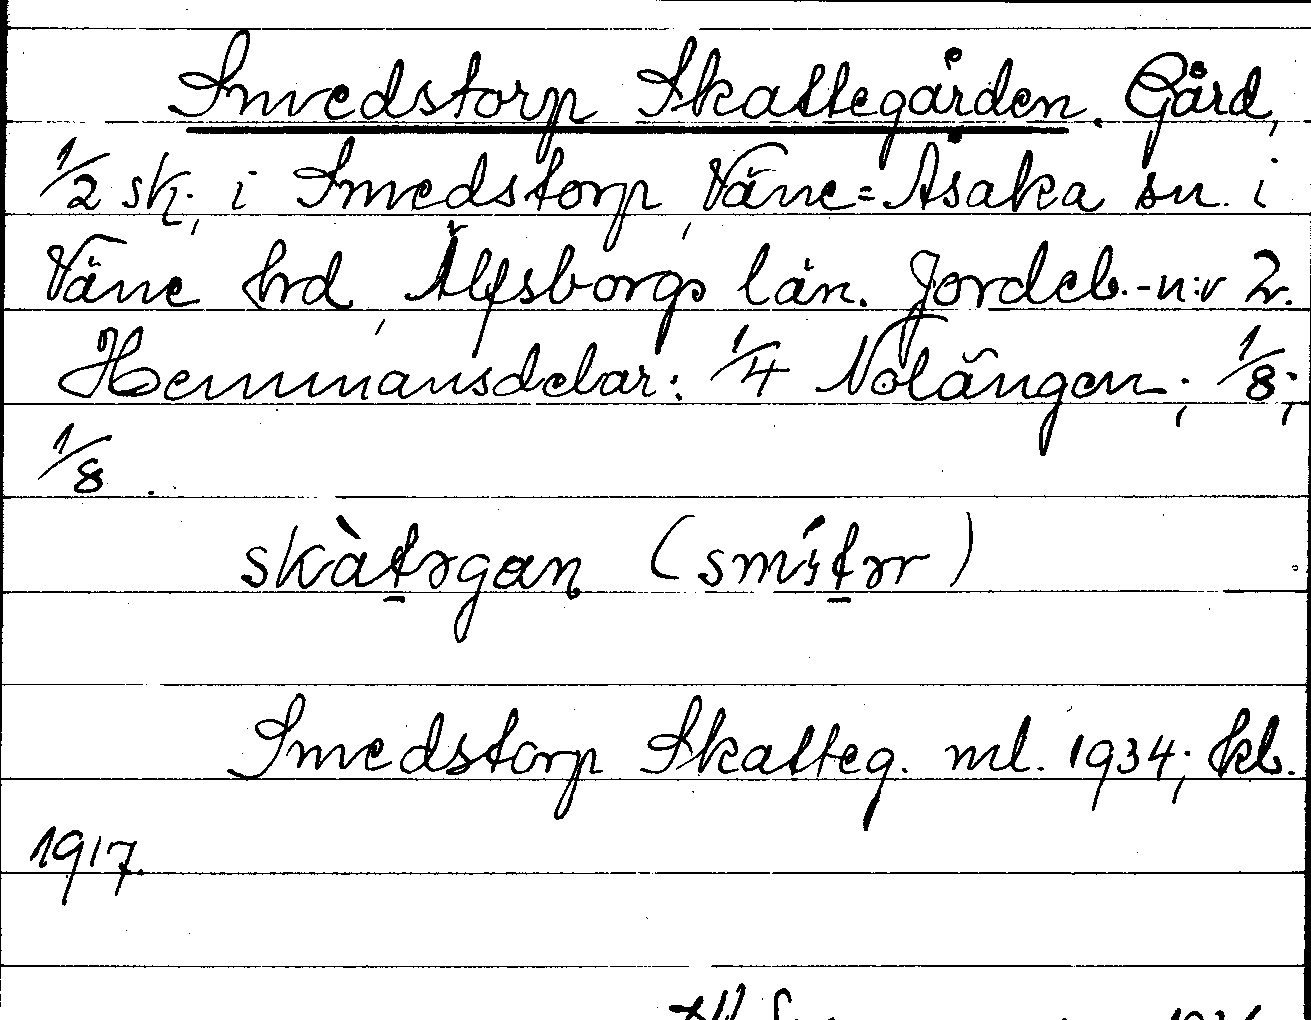 Smedstorp Skattegården. Gård,
1/2 sk., i Smedstorp, Väne=Åsaka sn. i
Väne hrd, Älfsborgs län. Jordeb.-n:r 2.
Hemmansdelar: 1/4 Nolängen; 1/8;
1/8.
Smedstorp Skatteg. ml. 1934; kb.
1917.